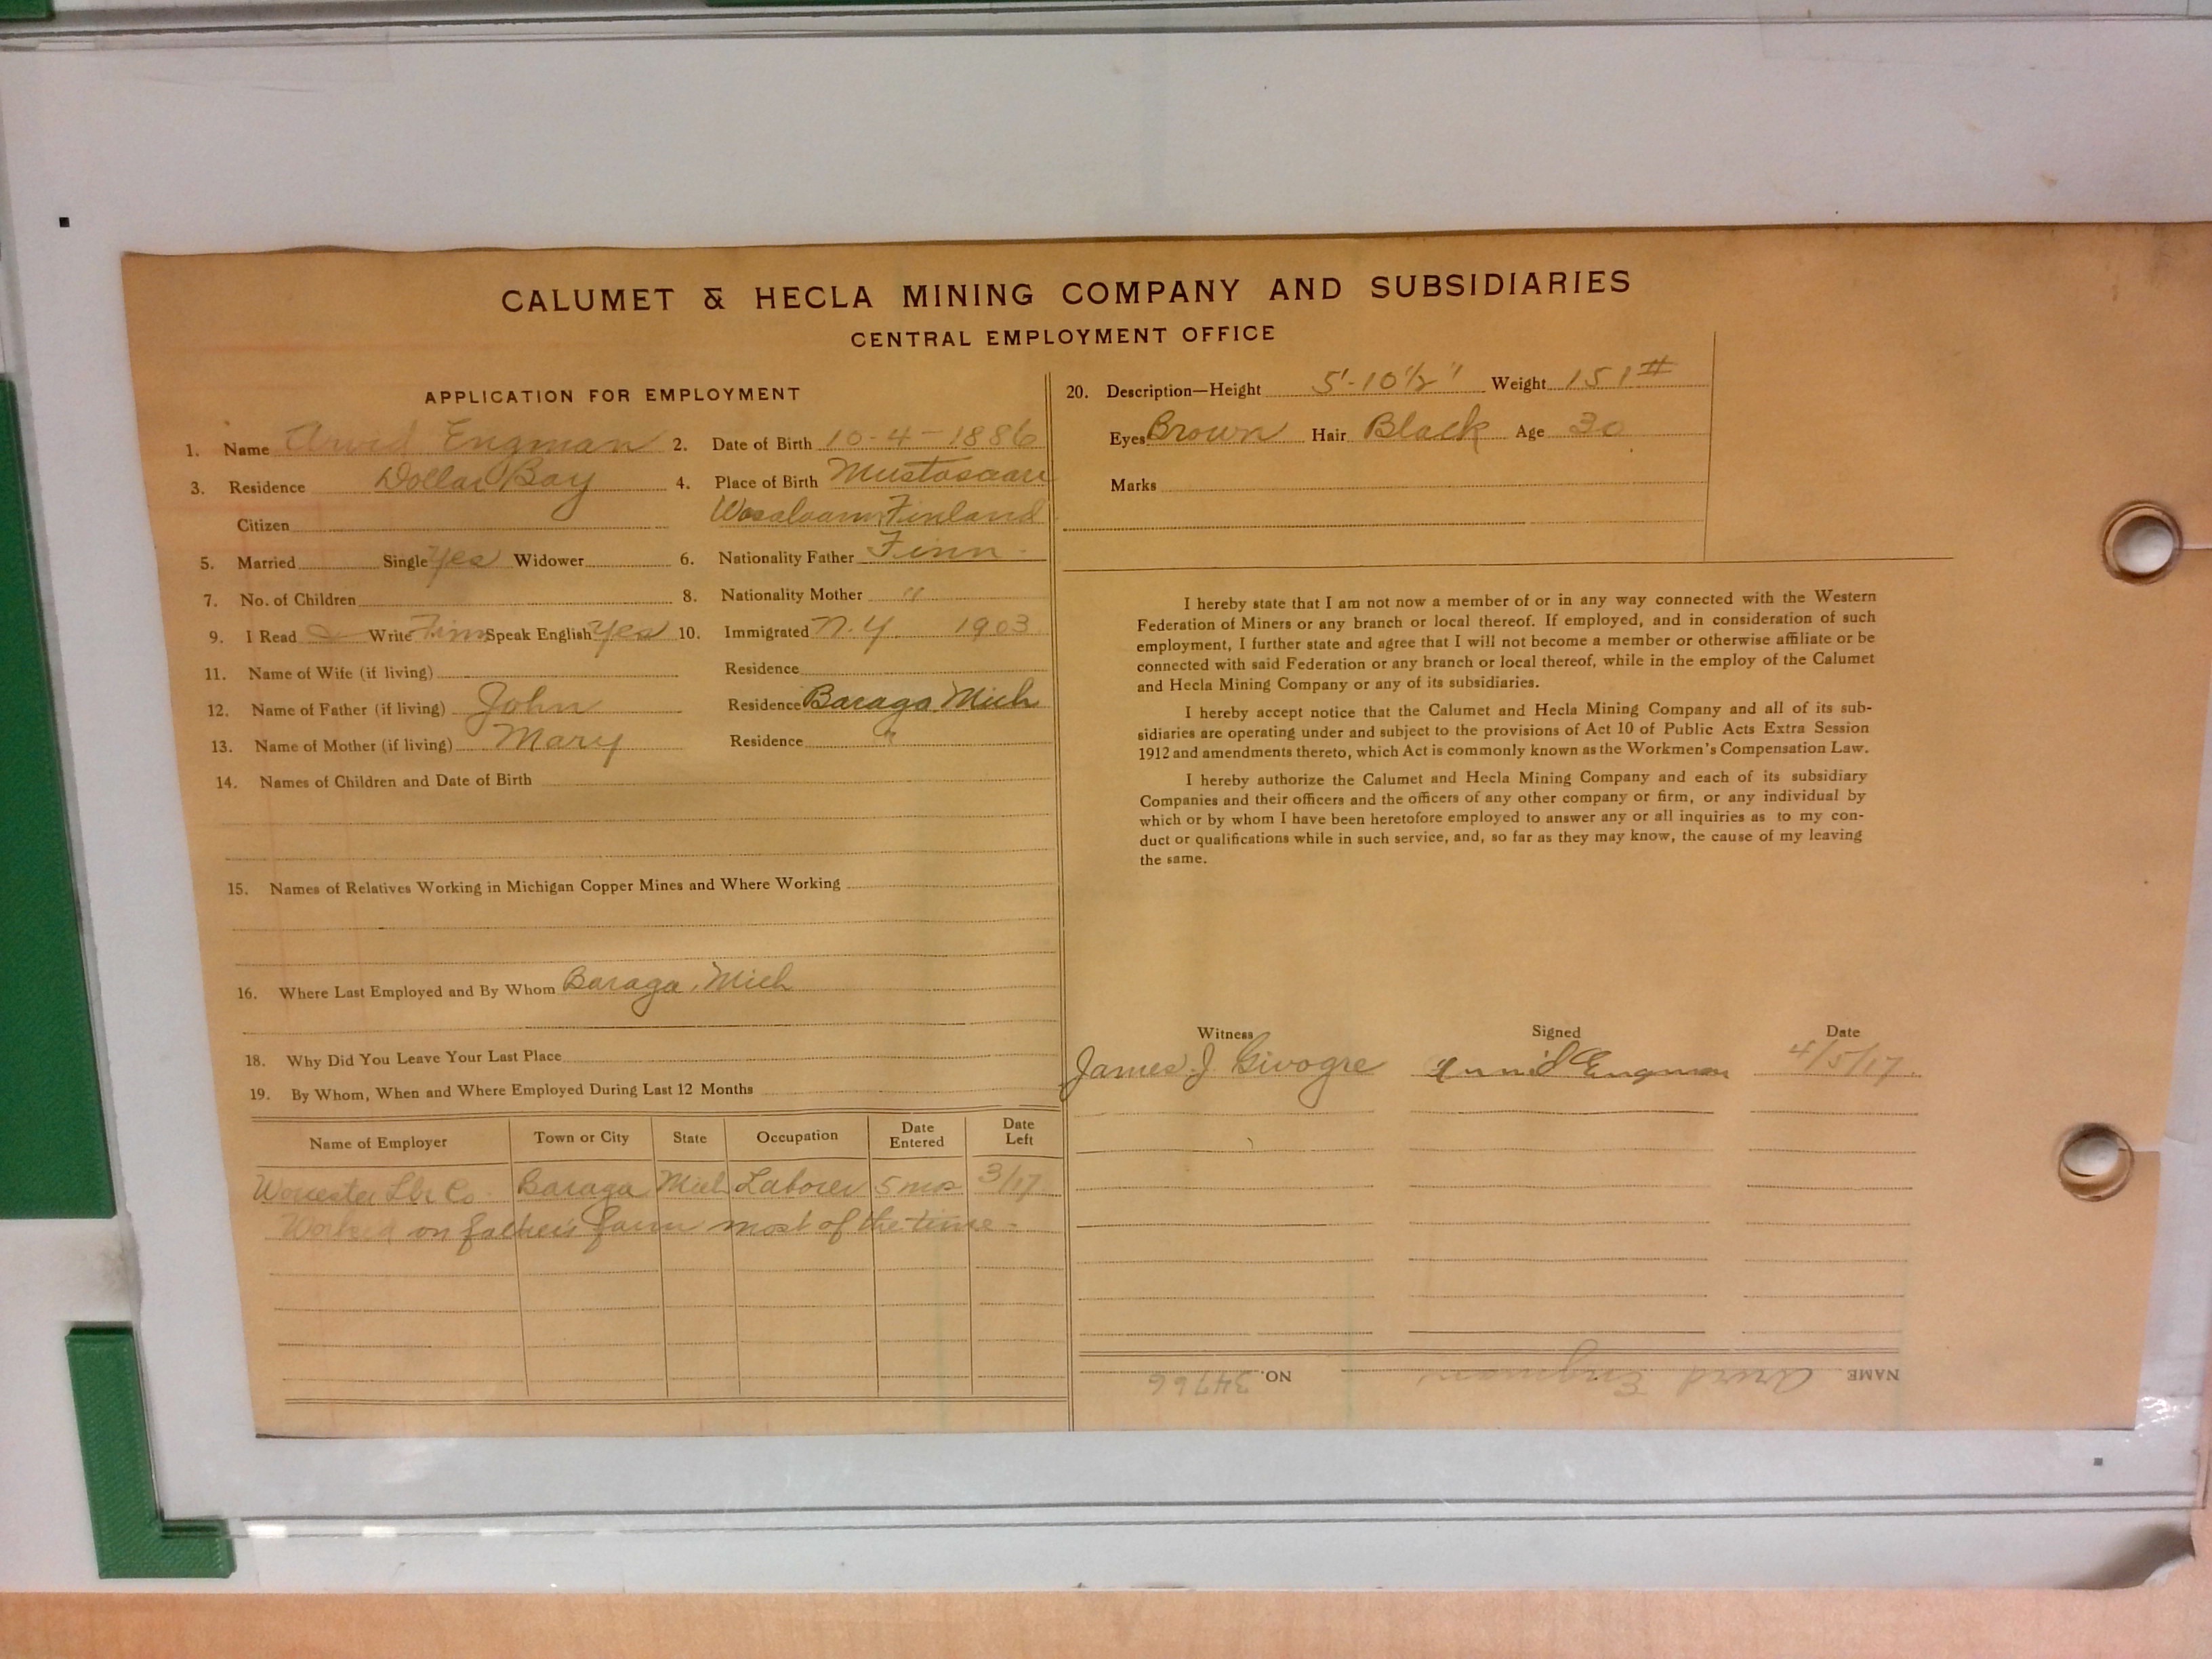 CALUMET & HECLA MINING COMPANY AND SUBSIDIARIES
CENTRAL EMPLOYMENT OFFICE
APPLICATION FOR EMPLOYMENT
1. Name Arvid Engman 2. Date of Birth 10-4-1886
3. Residence Dollar Bay 4. Place of Birth Mustasaari
Citizen Wasalaani Finland
5. Married Single Yes Widower 6. Nationality Father Finn
7. No. of Children 8. Nationality Mother "
9. I Read Write Finn Speak English Yes 10. Immigrated N.Y. 1903
11. Name of Wife (if living) Residence
12. Name of Father (if living) John Residence Baraga, Mich
13. Name of Mother (if living) Mary Residence "
14. Names of Children and Date of Birth
15. Names of Relatives Working in Michigan Copper Mines and Where Working
16. Where Last Employed and By Whom Baraga, Mich
18. Why Did You Leave Your Last Place
19. By Whom, When and Where Employed During Last 12 Months
Name of Employer Town or City State Occupation Date Entered Date Left
Worcester Lbr Co. Baraga Mich Laborer 5 mos 3/17
Worked on father's farm most of the time -
20. Description—Height 5'-10½" Weight 151#
Eyes Brown Hair Black Age 30
Marks
I hereby state that I am not now a member of or in any way connected with the Western
Federation of Miners or any branch or local thereof. If employed, and in consideration of such
employment, I further state and agree that I will not become a member or otherwise affiliate or be
connected with said Federation or any branch or local thereof, while in the employ of the Calumet
and Hecla Mining Company or any of its subsidiaries.
I hereby accept notice that the Calumet and Hecla Mining Company and all of its sub-
sidiaries are operating under and subject to the provisions of Act 10 of Public Acts Extra Session
1912 and amendments thereto, which Act is commonly known as the Workmen's Compensation Law.
I hereby authorize the Calumet and Hecla Mining Company and each of its subsidiary
Companies and their officers and the officers of any other company or firm, or any individual by
which or by whom I have been heretofore employed to answer any or all inquiries as to my con-
duct or qualifications while in such service, and, so far as they may know, the cause of my leaving
the same.
Witness Signed Date
James J. Givogre Arvid Engman 4/5/17.
NAME Arvid Engman NO. 34766